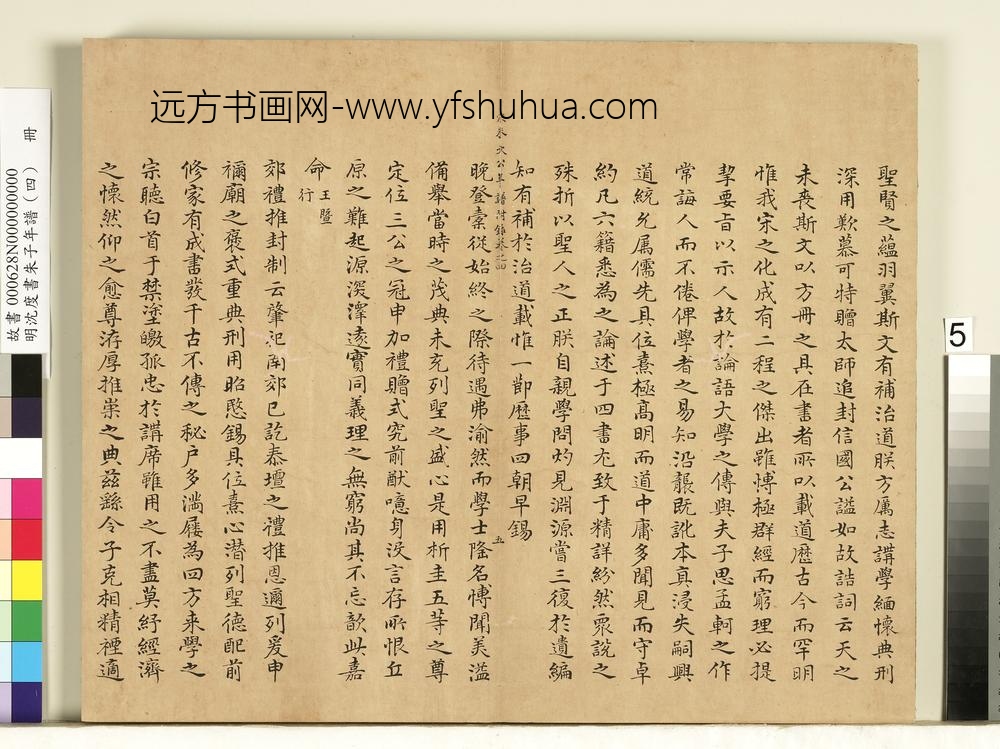 远方书画网-www.yfshuhua.com
聖賢之蘊羽翼斯文有補治道朕方厲志講學緬懷典刑
深用歎慕可特贈太師追封信國公謚如故誥詞云天之
未喪斯文以方冊之具在書者所以載道歷古今而罕明
惟我宋之化成有二程之傑出雖博極群經而窮理必提
挈要旨以示人故於論語大學之傳與夫子思孟軻之作
常誨人而不倦俾學者之易知沿襲既訛本真浸失嗣興
道統允屬儒先具位熹極高明而道中庸多聞見而守卓
約凡六籍悉為之論述于四書尤致于精詳紛然眾說之
殊折以聖人之正朕自親學問灼見淵源嘗三復於遺編
朱文公年譜附錄卷之四
五
知有補於治道載惟一節歷事四朝早錫
晚登橐從始終之際待遇弗渝然而學士隆名博聞美謚
備舉當時之茂典未充列聖之盛心是用析圭五等之尊
定位三公之冠申加禮贈式究前猷噫身沒言存所恨丘
原之難起源深澤遠實同義理之無窮尚其不忘歆此嘉
命 王暨行
郊禮推封制云肇祀南郊已訖泰壇之禮推恩邇列爰申
禰廟之褒式重典刑用昭愍錫具位熹心潛列聖德配前
修家有成書發千古不傳之秘戶多滿屨為四方來學之
宗聽白首于禁塗皦孤忠於講席雖用之不盡莫紓經濟
之懷然仰之愈尊洊厚推崇之典茲繇令子克相精禋適
故書000628N000000000
冊
明沈度書朱子年譜(四)
5